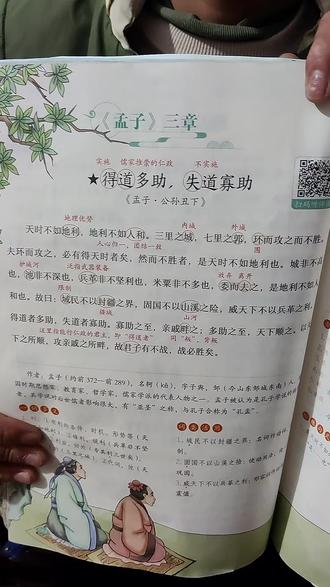 《孟子》三章
实施 儒家推崇的仁政 不实施
★得道多助，失道寡助
《孟子·公孙丑下》
扫码听
地理优势 内城 外城
天时不如地利，地利不如人和。三里之城，七里之郭，环而攻之而不胜。
人心归一，团结一致 围
夫环而攻之，必有得天时者矣，然而不胜者，是天时不如地利也。城非不高
护城河 泛指武器装备 放弃 离开
也，池非不深也，兵革非不坚利也，米粟非不多也，委而去之，是地利不如人
限制
和也。故曰：域民不以封疆之界，固国不以山溪之险，威天下不以兵革之利。
疆域 山河
得道者多助，失道者寡助。寡助之至，亲戚畔之；多助之至，天下顺之。以天
这里指能行仁政的君主，即“得道者” 同“叛”，背叛
下之所顺，攻亲戚之所畔，故君子有不战，战必胜矣。
作者：孟子（约前372—前289），名轲（kē），字子舆，邹（今山东邹城东南）人，
国时期思想家、教育家、哲学家，儒家学派的代表人物之一。孟子被认为是孔子学说的
者，其学说对后世儒者影响很大，有“亚圣”之称，与孔子合称为“孔孟”。
一词多义
词类活用
1. 域民不以封疆之界：名词作动词，
2. 固国不以山溪之险：使动用法，使
巩固。
3. 威天下不以兵革之利：
震慑。